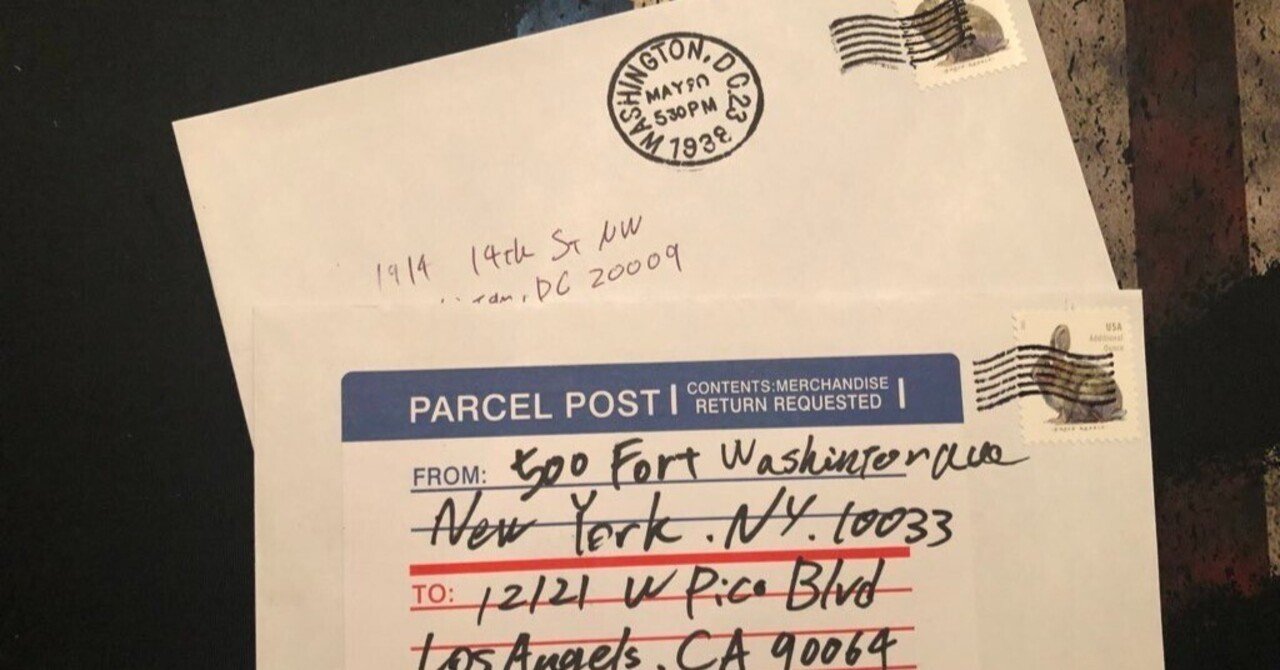 WASHINGTON, D.C. 23
MAY 20
530PM
1938
1914 14th St NW
DC 20009
USA
Additional
Ounce
PARCEL POST
CONTENTS:MERCHANDISE
RETURN REQUESTED
FROM: 500 Fort Washinton ave
New York. NY. 10033
TO: 12121 W Pico Blvd
Los Angels, CA 90064